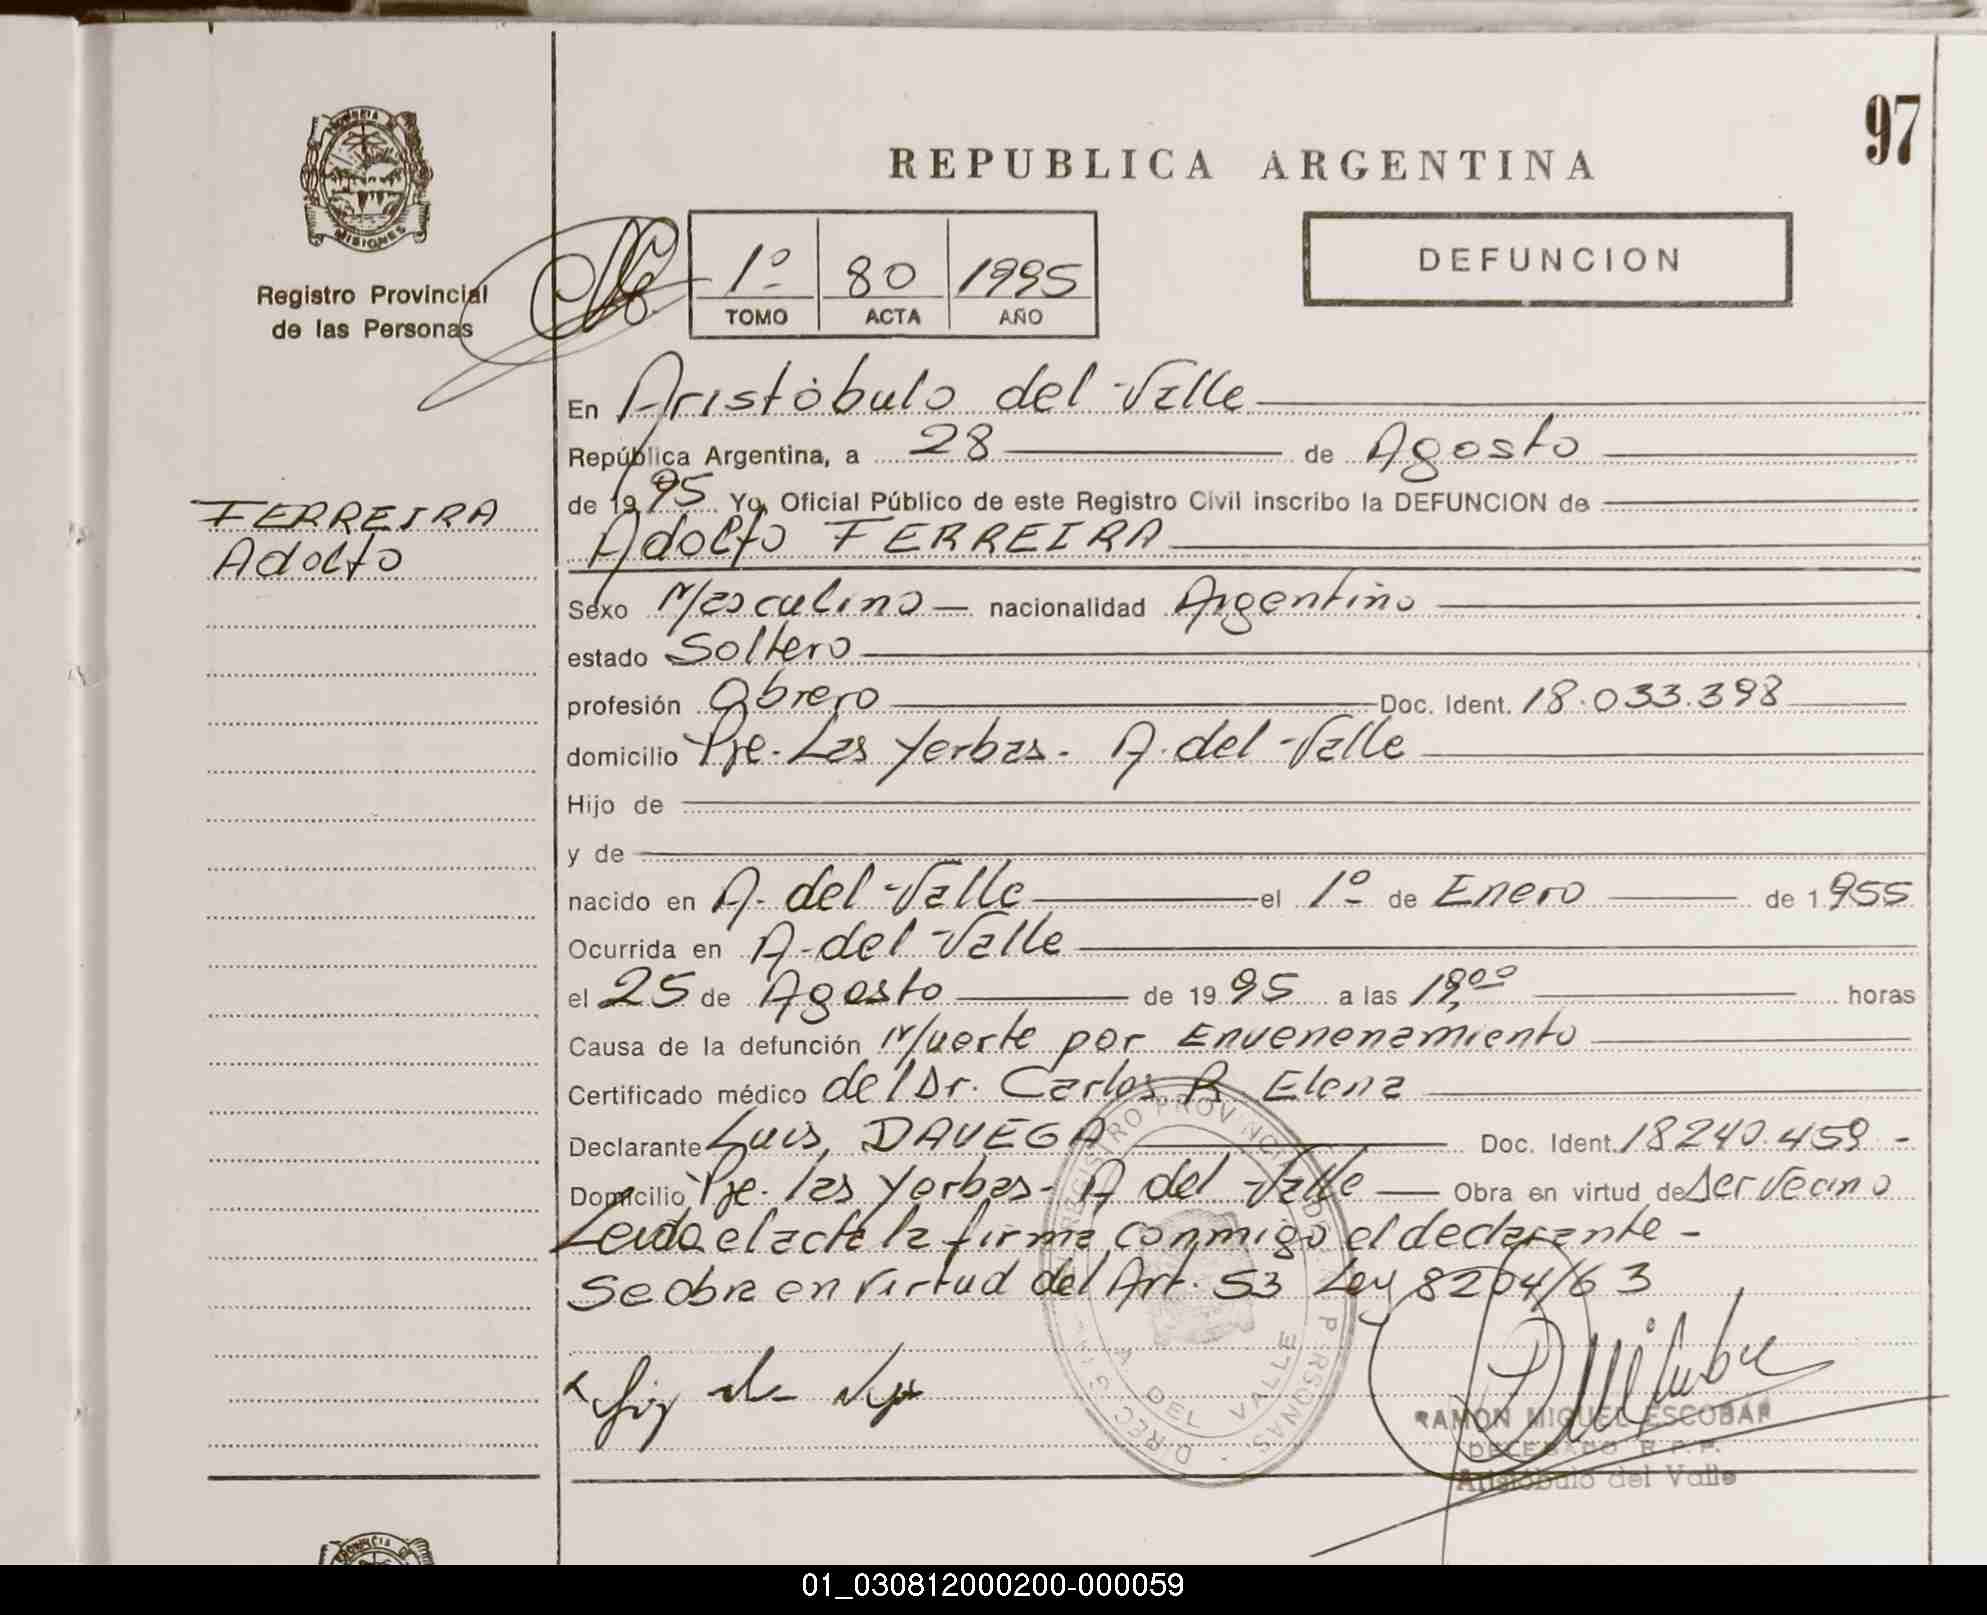 97
REPUBLICA ARGENTINA
PROVINCIA DE
MISIONES
Registro Provincial
de las Personas
1º 80 1995
TOMO ACTA AÑO
DEFUNCION
En Aristóbulo del Valle
República Argentina, a 28 de Agosto
de 1995 Yo, Oficial Público de este Registro Civil inscribo la DEFUNCION de
Adolfo FERREIRA
FERREIRA
Adolfo
Sexo Masculino nacionalidad Argentino
estado Soltero
profesión Obrero Doc. Ident. 18.033.398
domicilio Pje. Las Yerbas - A. del Valle
Hijo de
y de
nacido en A. del Valle el 1º de Enero de 1955
Ocurrida en A. del Valle
el 25 de Agosto de 1995 a las 19,00 horas
Causa de la defunción Muerte por Envenenamiento
Certificado médico del Dr. Carlos R. Elena
Declarante Luis DAVEGA Doc. Ident. 18240.459 -
Domicilio Pje. las Yerbas - A del Valle Obra en virtud de ser vecino
Leida el acta la firma conmigo el declarante -
Se obra en virtud del Art. 53 Ley 8204/63
RAMON MIGUEL ESCOBAR
DELEGADO R.P.P.
Aristóbulo del Valle
01_030812000200-000059